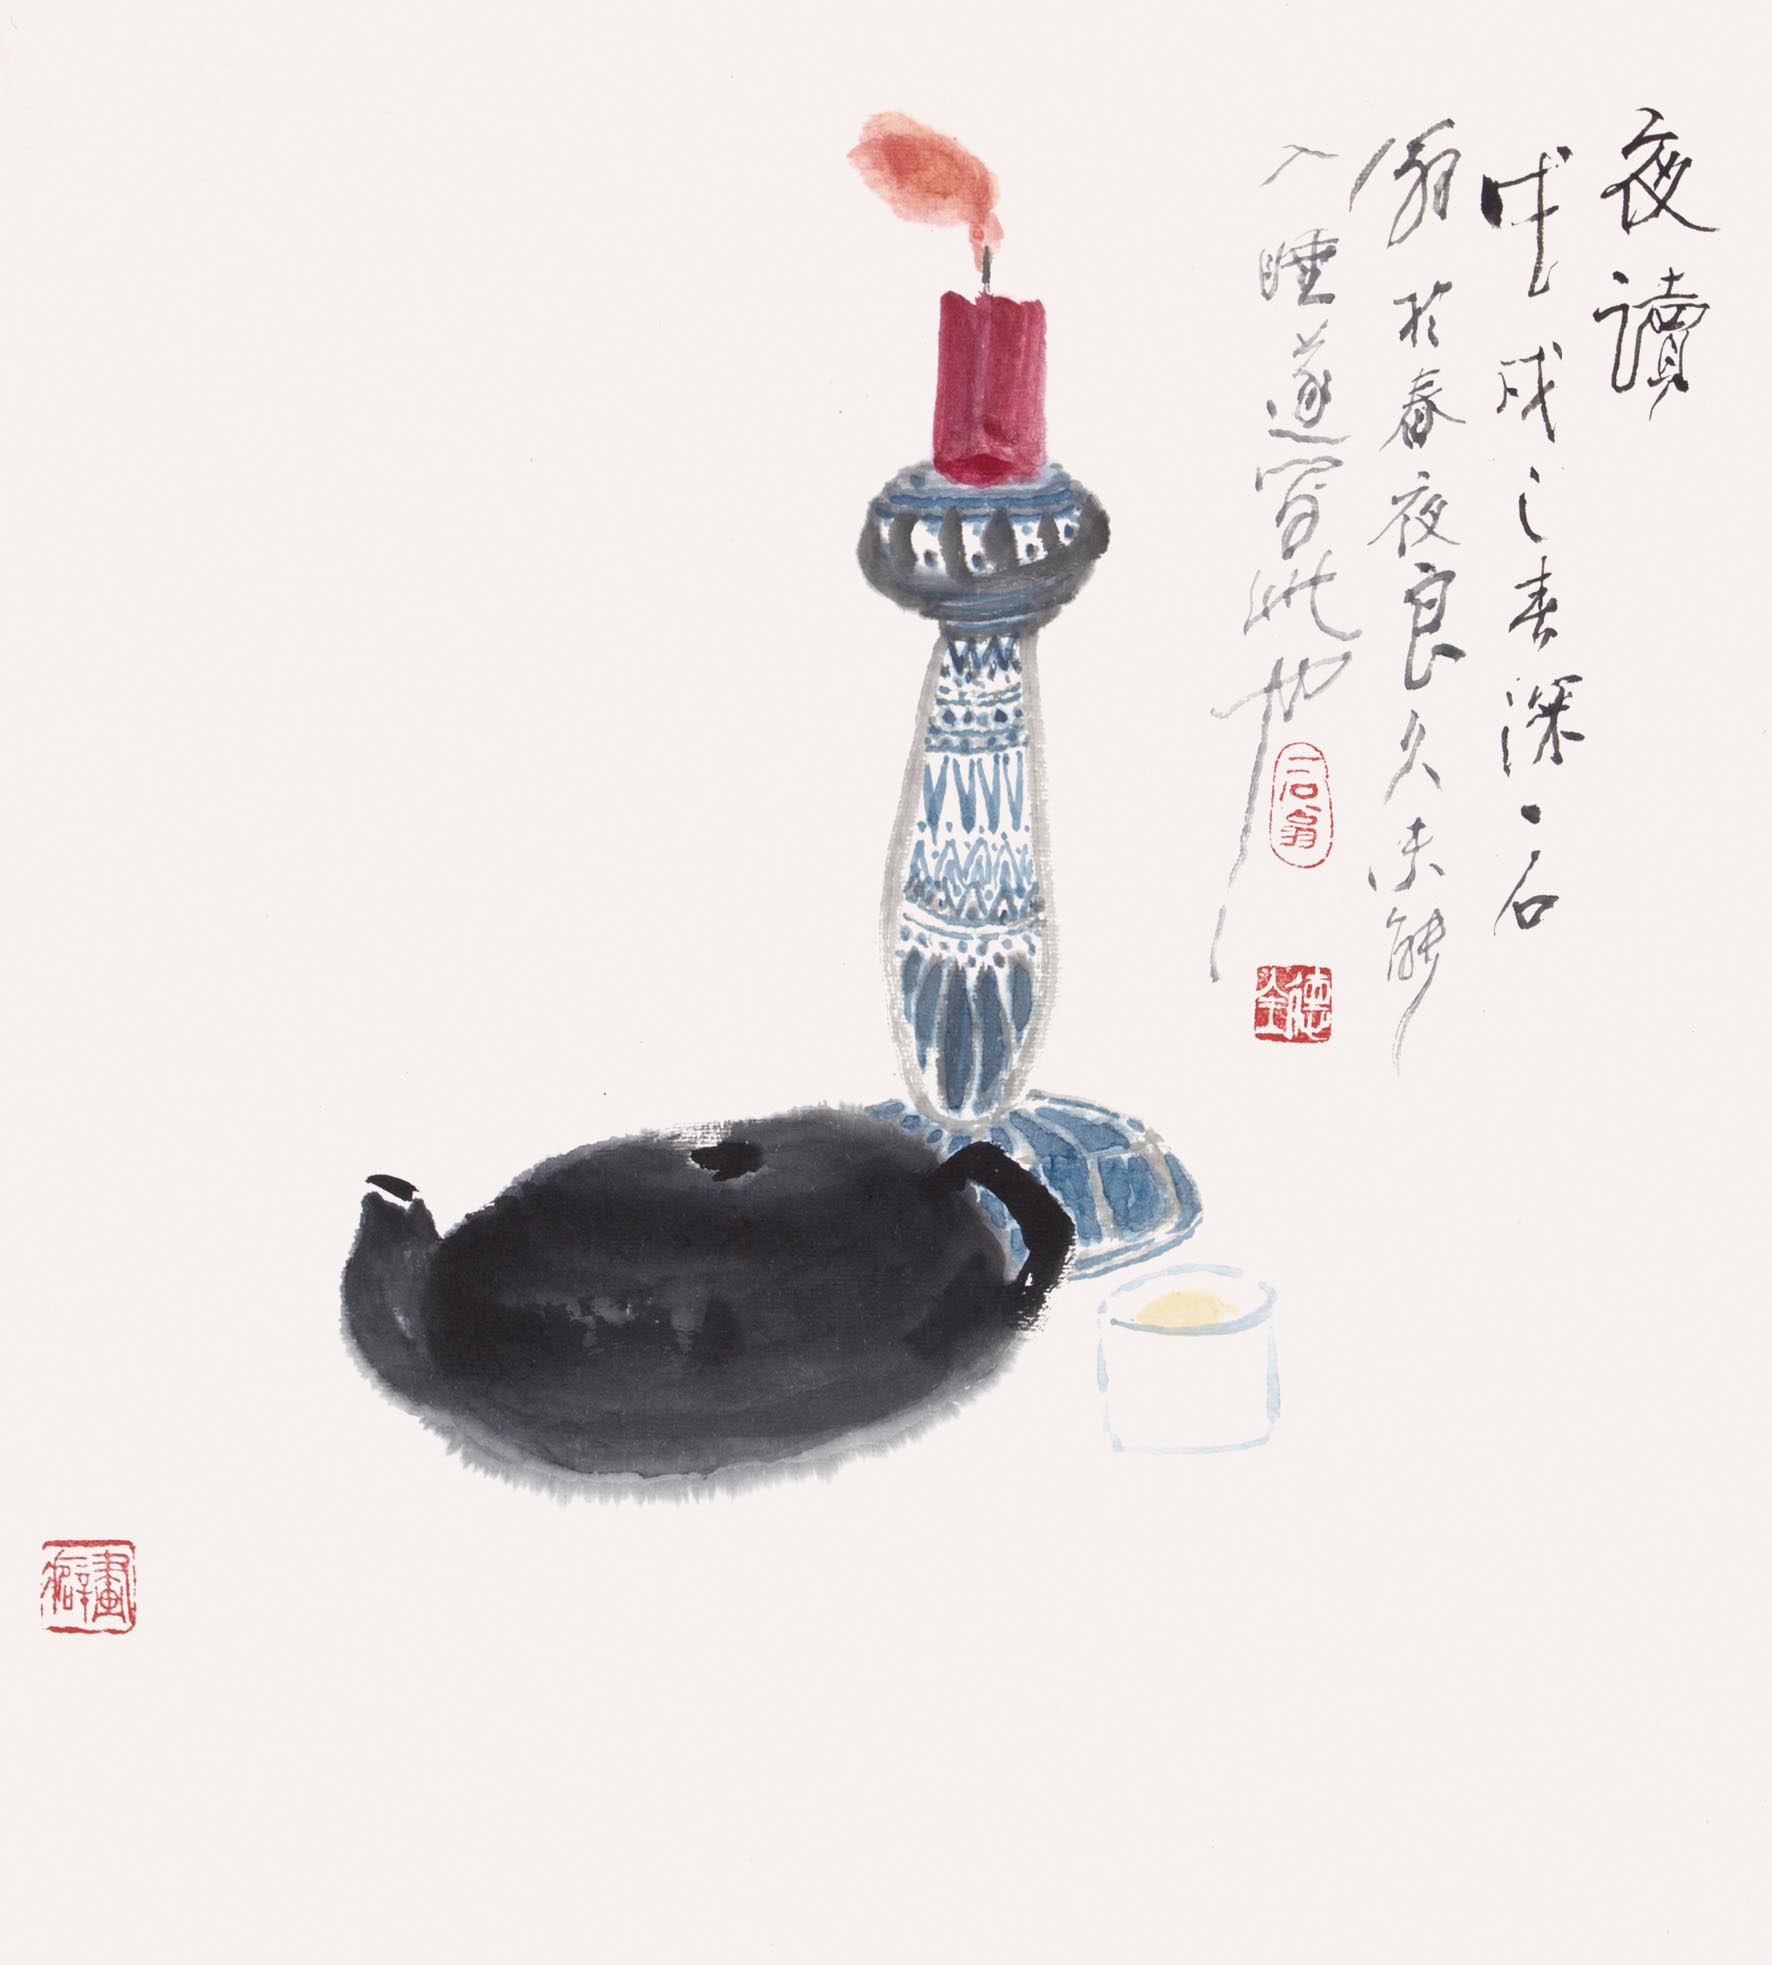 夜讀
戊戌之春深、石
翁於春夜良久未能
入睡遂寫此也
石翁
德
畫癖